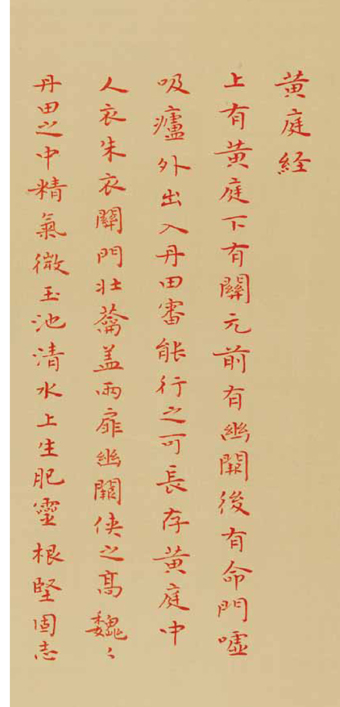 黄庭経
上有黄庭下有關元前有幽闕後有命門噓
吸廬外出入丹田審能行之可長存黄庭中
人衣朱衣關門壮蘥盖兩扉幽關侠之髙魏〻
丹田之中精氣微玉池清水上生肥靈根堅固志